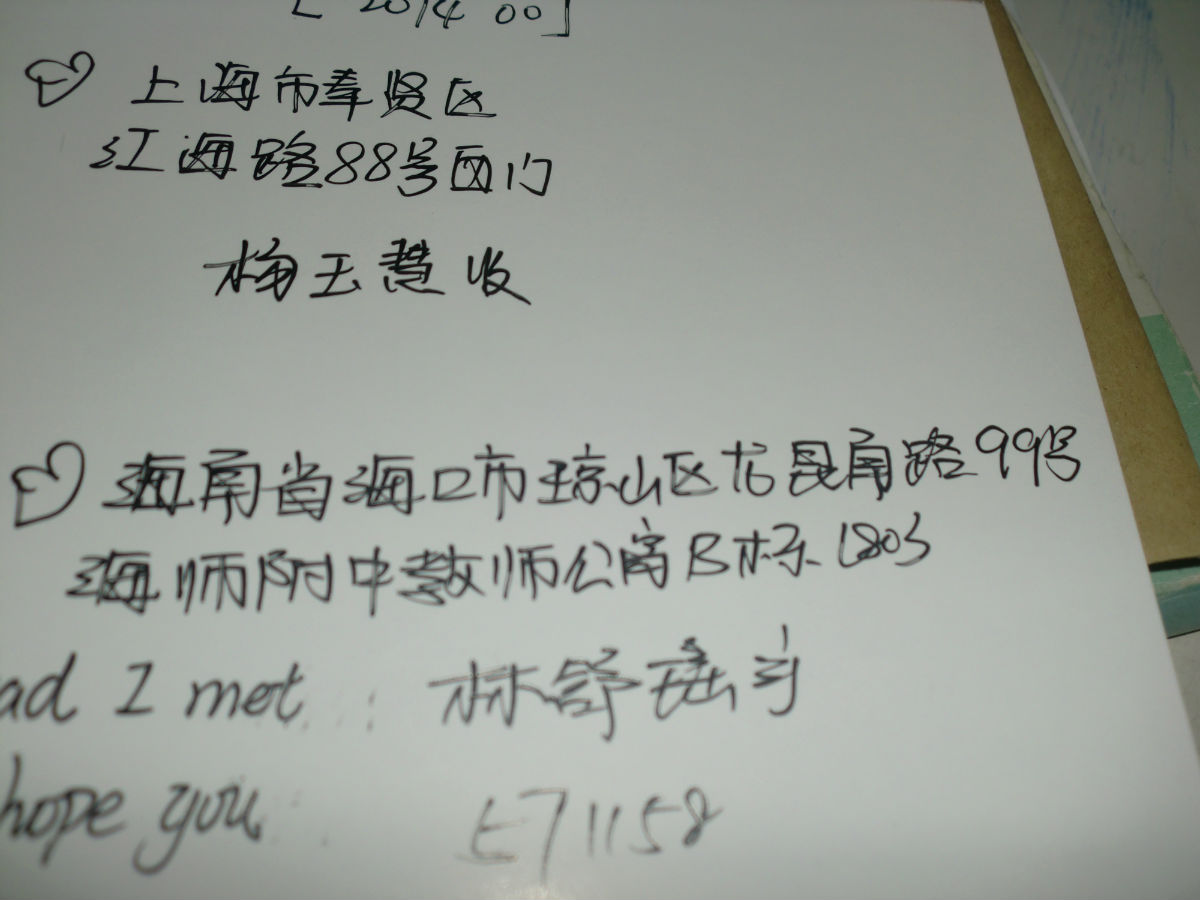 [ 201400]
上海市奉贤区
江海路88号西门
梅玉慧 收
海南省海口市琼山区龙昆南路99号
海师附中教师公寓B栋1803
ad I met 林舒
hope you 571158